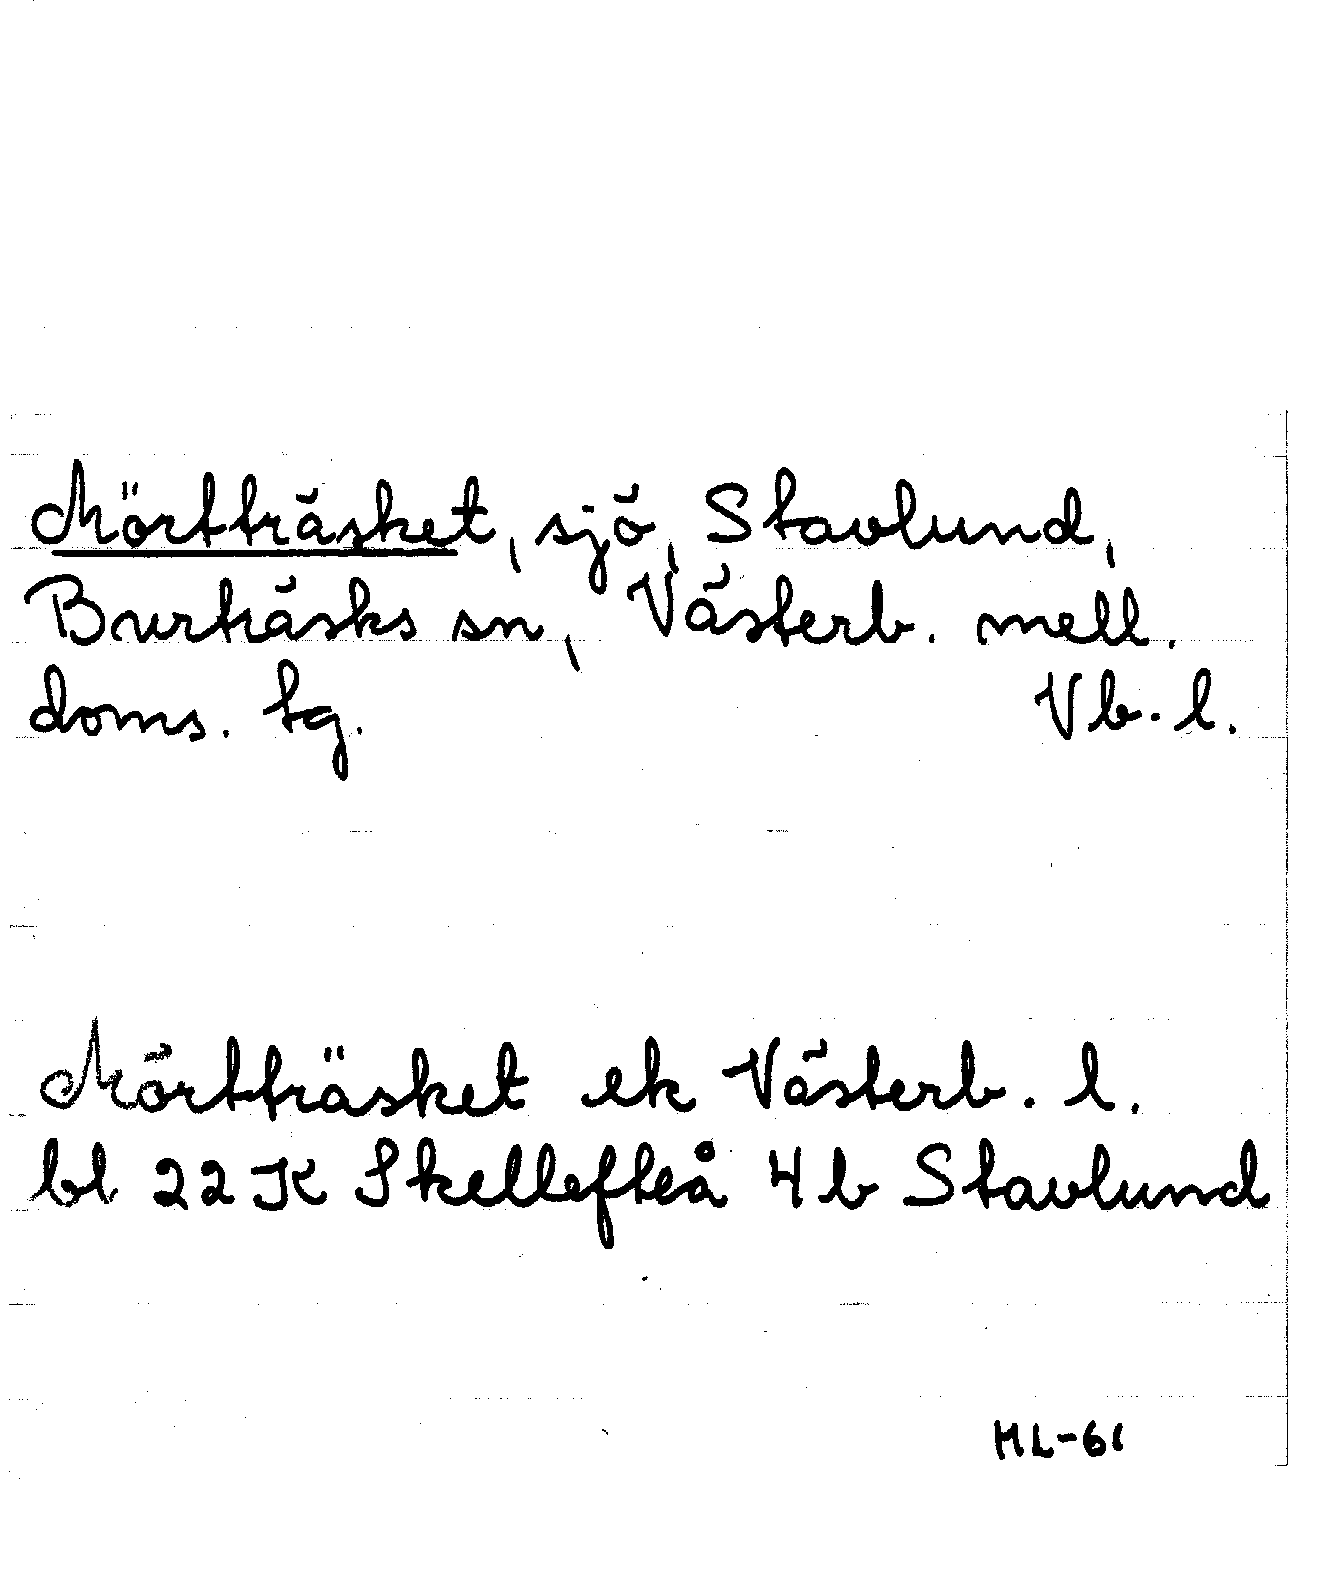 Mörtträsket, sjö, Stavlund,
Burträsks sn, Västerb. mell.
doms. tg. Vb. l.
Mörtträsket ek Västerb. l.
bl 22 K Skellefteå 4 b Stavlund
ML-61